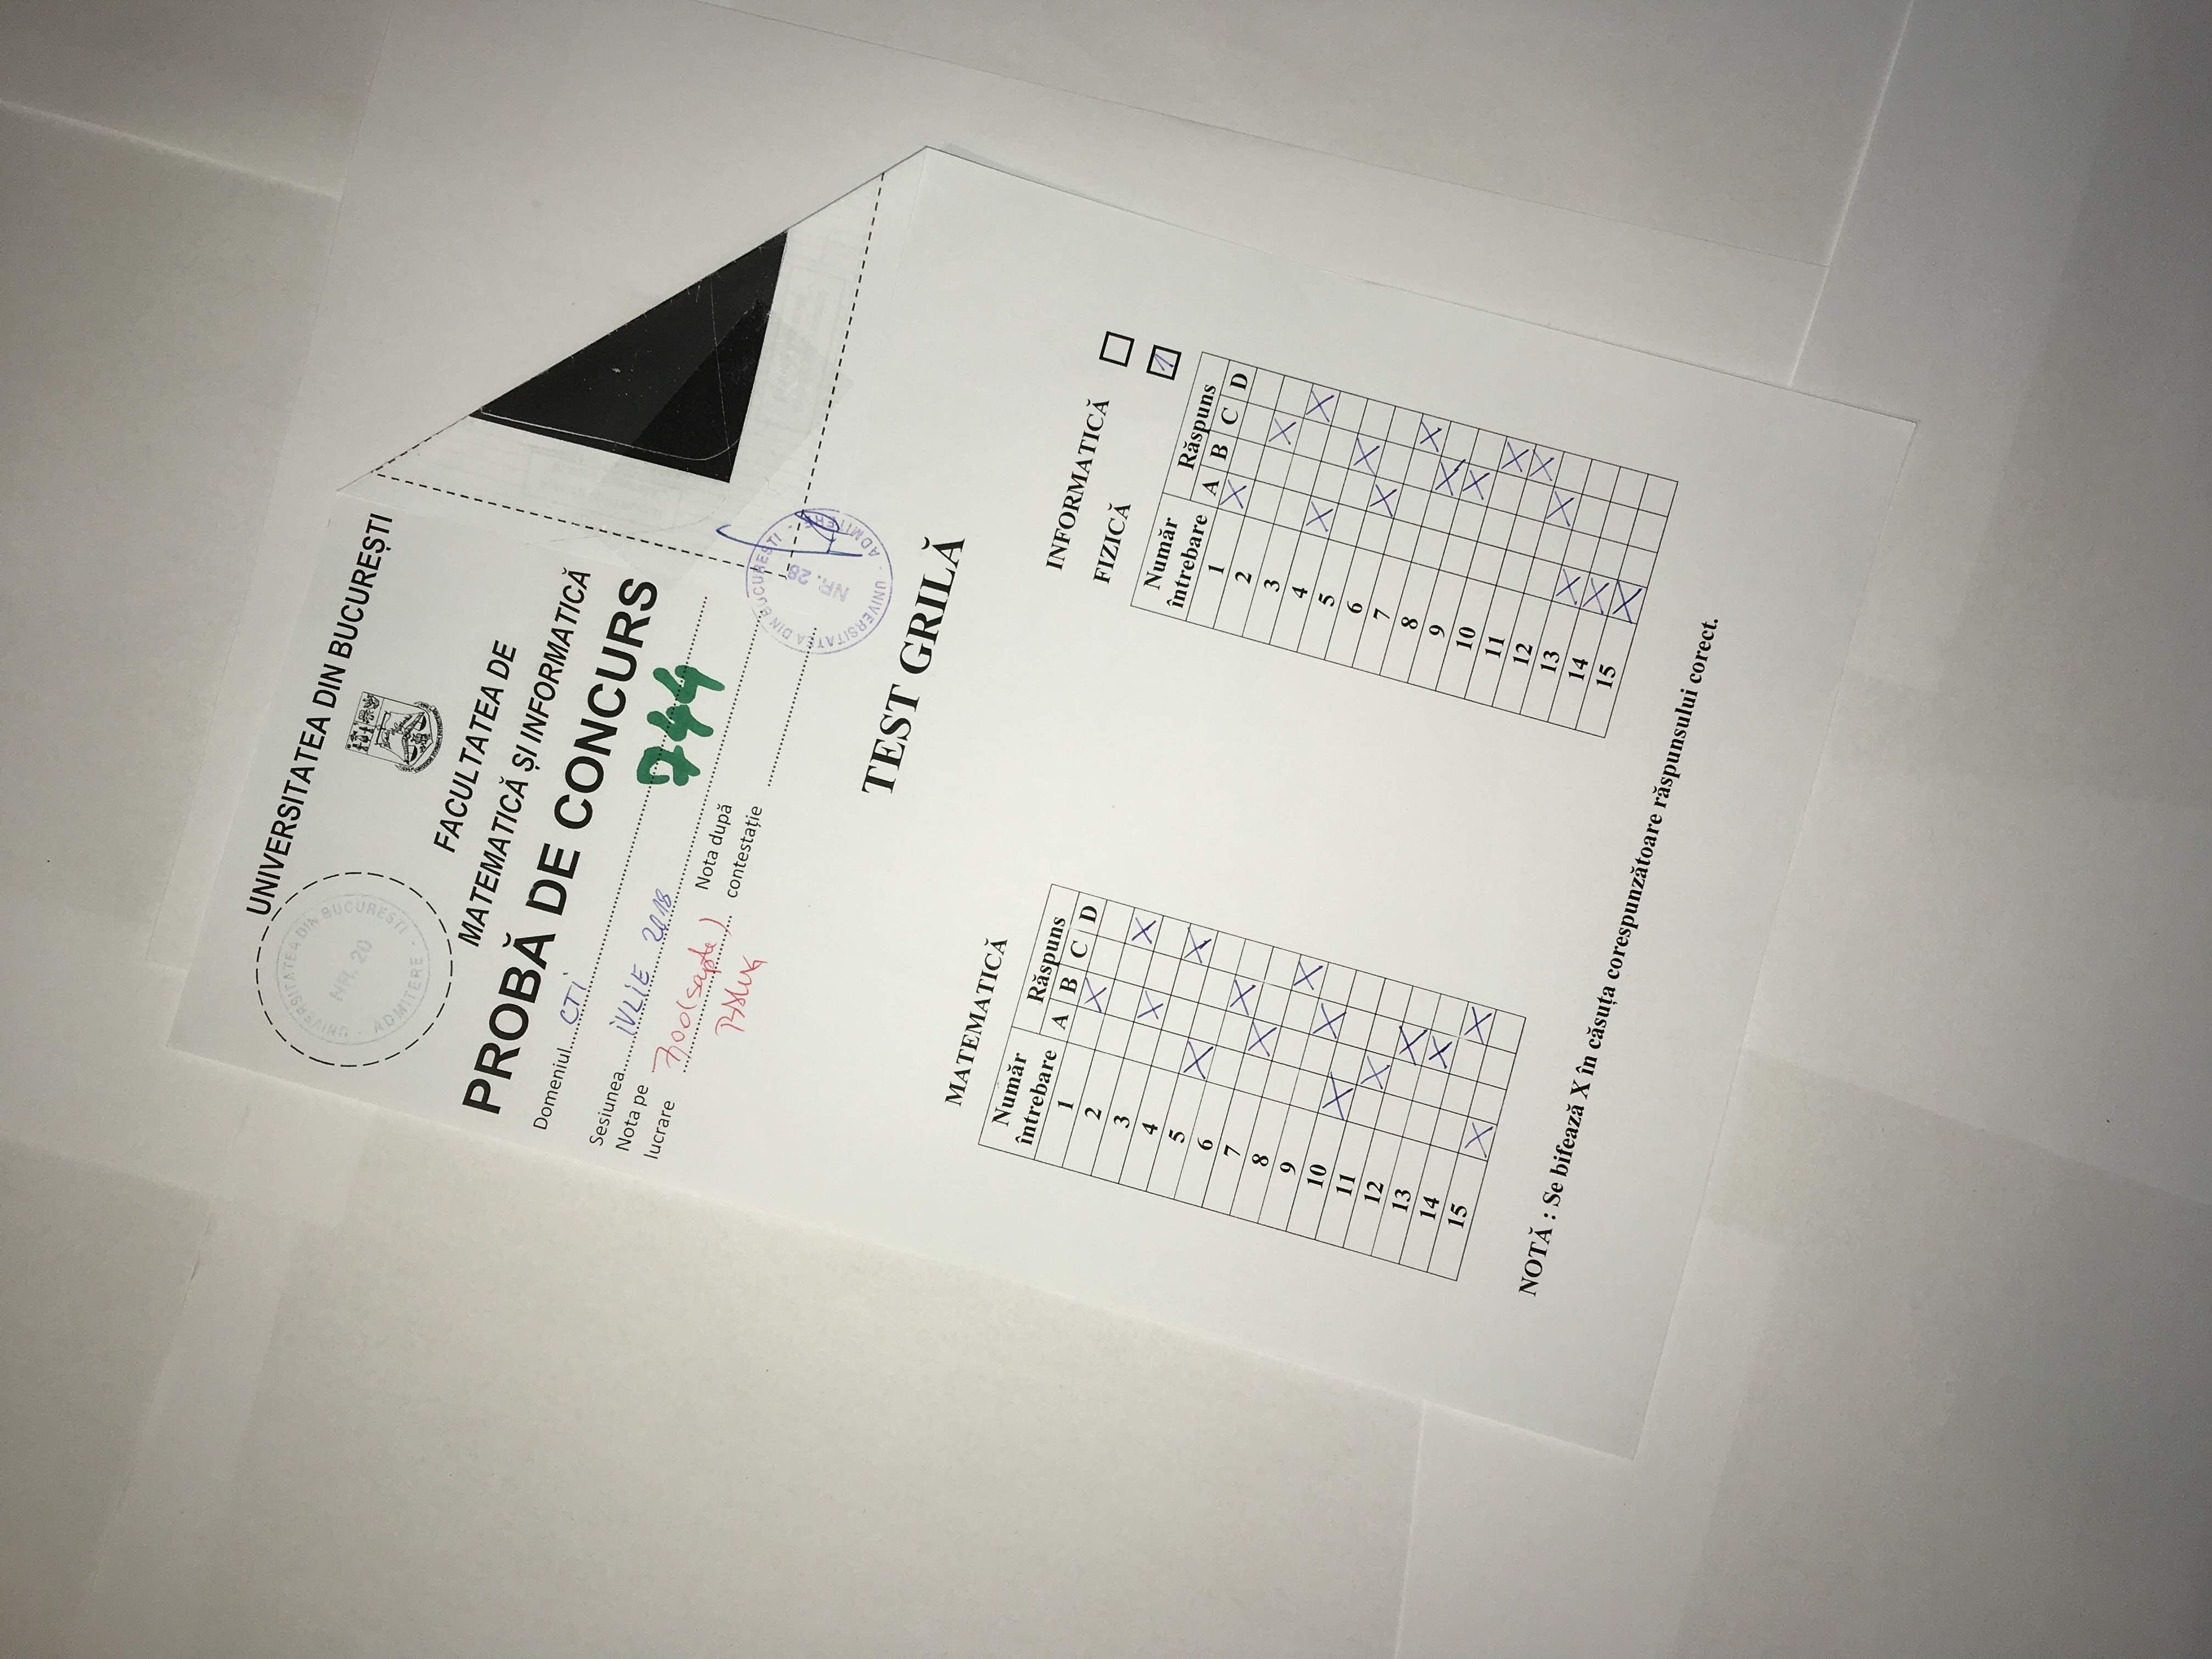 UNIVERSITATEA DIN BUCUREȘTI
UNIVERSITATEA DIN BUCUREȘTI - ADMITERE -
NR. 20
FACULTATEA DE
MATEMATICĂ ȘI INFORMATICĂ
PROBĂ DE CONCURS
Domeniul CTI
Sesiunea IULIE 2018
744
Nota pe lucrare 7,00 (șapte)
Nota după contestație
UNIVERSITATEA DIN BUCUREȘTI - ADMITERE -
NR. 28
TEST GRILĂ
MATEMATICĂ
Număr întrebare Răspuns
A B C D
1 X
2 X
3 X
4 X
5 X
6 X
7 X
8 X
9 X
10 X
11 X
12 X
13 X
14 X
15 X
INFORMATICĂ
FIZICĂ 1
Număr întrebare Răspuns
A B C D
1 X
2 X
3 X
4 X
5 X
6 X
7 X
8 X
9 X
10 X
11 X
12 X
13 X
14 X
15 X
NOTĂ : Se bifează X în căsuța corespunzătoare răspunsului corect.